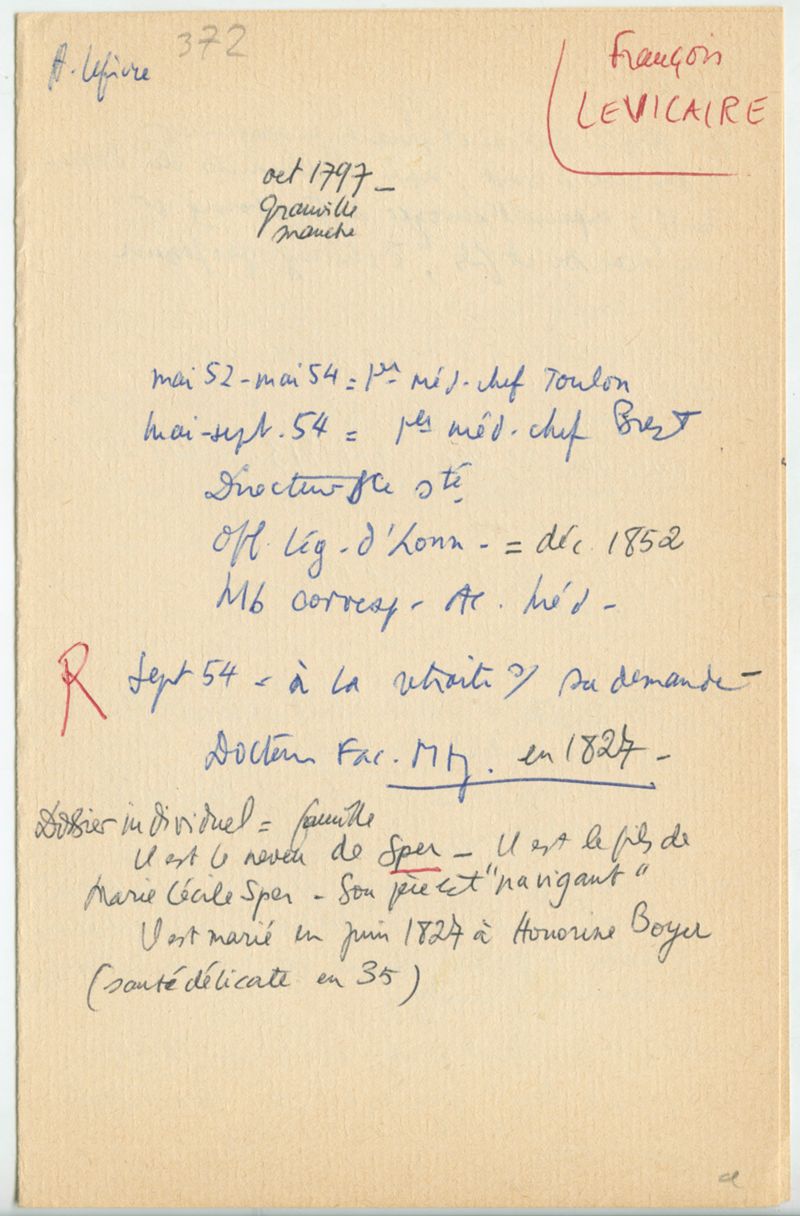 A. Lefèvre
372
François
LEVICAIRE
oct 1797 -
Granville
Manche
mai 52 - mai 54 = 1er méd. chef Toulon
mai - sept. 54 = 1er méd. chef Brest
Directeur Sce Sté
Off. Lég. d'Honn - = déc. 1852
Mb corresp - Ac. Méd -
R
Sept 54 - à la retraite s/ sa demande -
Docteur Fac. en 1827 -
Dossier individuel = famille
Il est le neveu de Sper - Il est le fils de
Marie Cécile Sper - Son père est "navigant"
Il est marié en juin 1827 à Honorine Boyer
(santé délicate en 35)